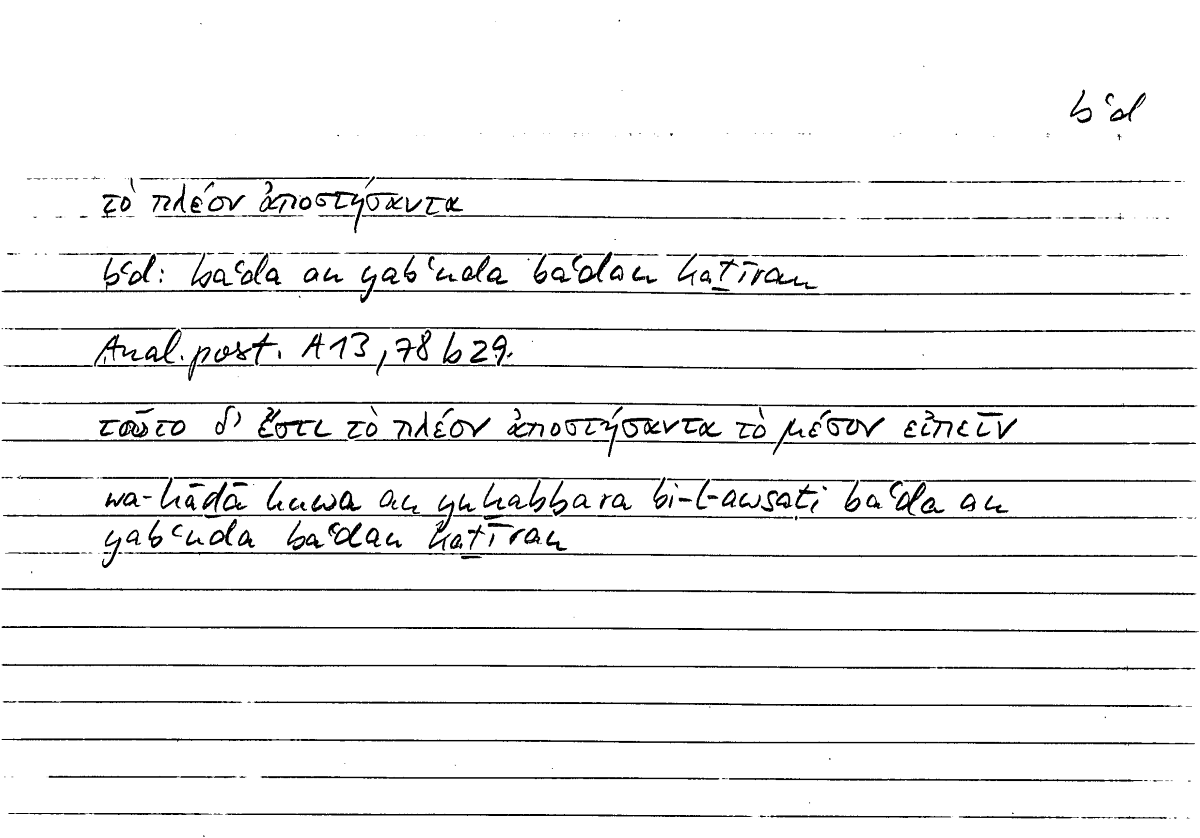 bʿd
τὸ πλέον ἀποστήσαντα
bʿd: baʿda an yabʿuda baʿdan kaṯīran
Anal. post. A13, 78 b 29.
τοῦτο δ' ἔστι τὸ πλέον ἀποστήσαντα τὸ μέσον εἰπεῖν
wa-hāḏā huwa an yuḫabbara bi-l-awsaṭi baʿda an
yabʿuda baʿdan kaṯīran